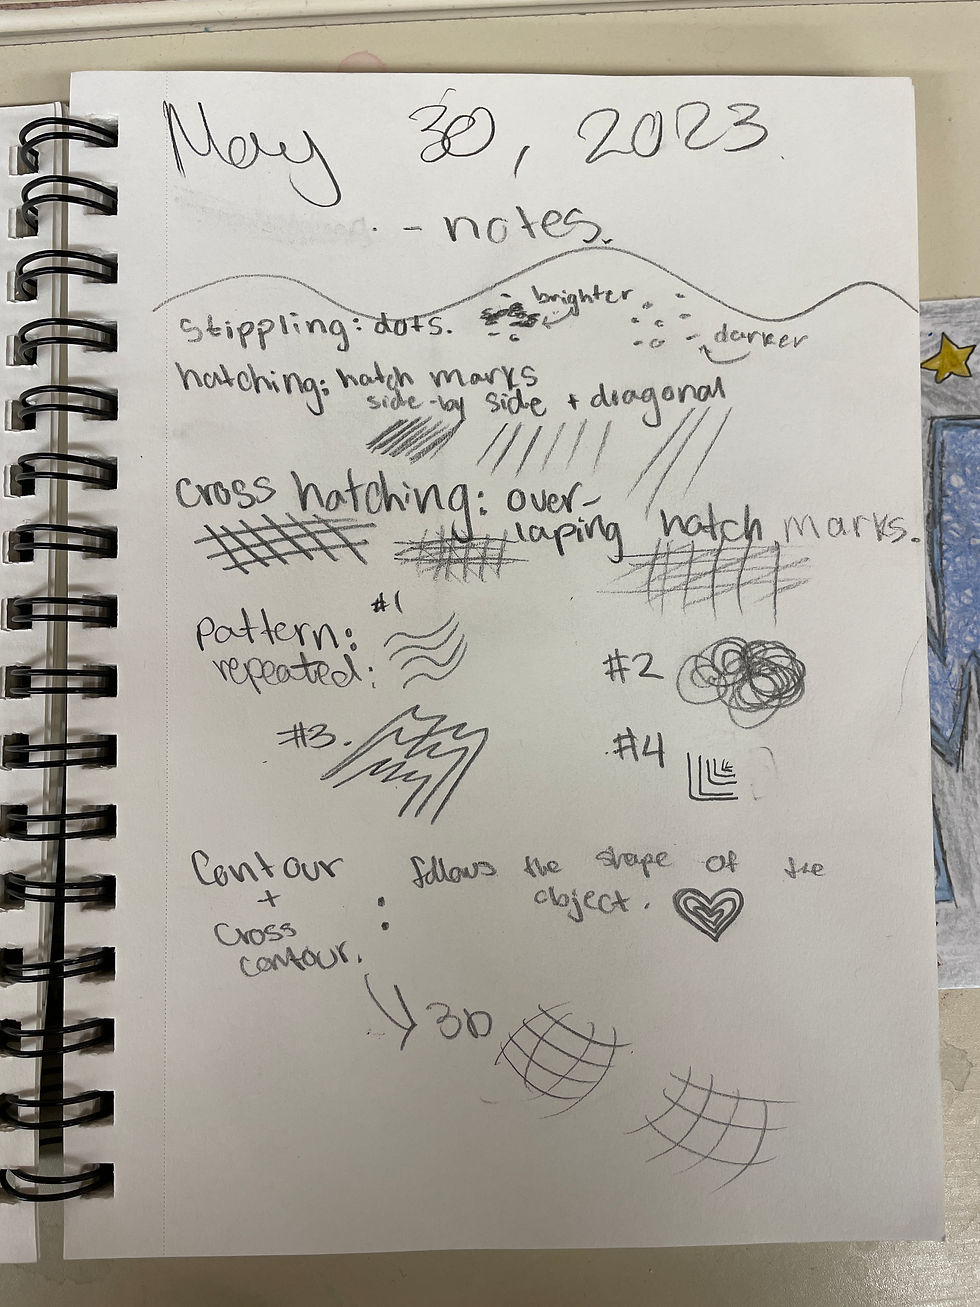 May 30, 2023
- notes.
stippling: dots.
brighter
darker
hatching: hatch marks
side-by side + diagonal
Cross hatching: over-
laping hatch marks.
pattern:
repeated:
#1
#2
#3.
#4
Contour
+
Cross
contour.
:
follows the shape of the
object.
3D